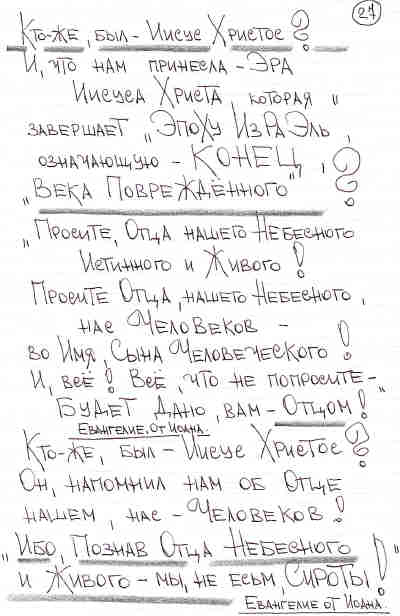 27
Кто-же, был - Иисус Христос?
И, что нам принесла - Эра
Иисуса Христа, которая "
завершает "Эпоху ИзРаЭль,
означающую - КОНЕЦ, ?
"Века Повреждённого",
"Просите, Отца нашего Небесного
Истинного и Живого!
Просите Отца, нашего Небесного,
нас Человеков -
во Имя, Сына Человеческого!
И, всё! Всё, что не попросите -
Будет Дано, вам - Отцом!"
Евангелие. от Иоана.
Кто-же, был - Иисус Христос?
Он, напомнил нам об Отце
нашем, нас - Человеков!
"Ибо, Познав Отца Небесного
и Живого - мы, не есьм, Сироты!"
Евангелие от Иоана.